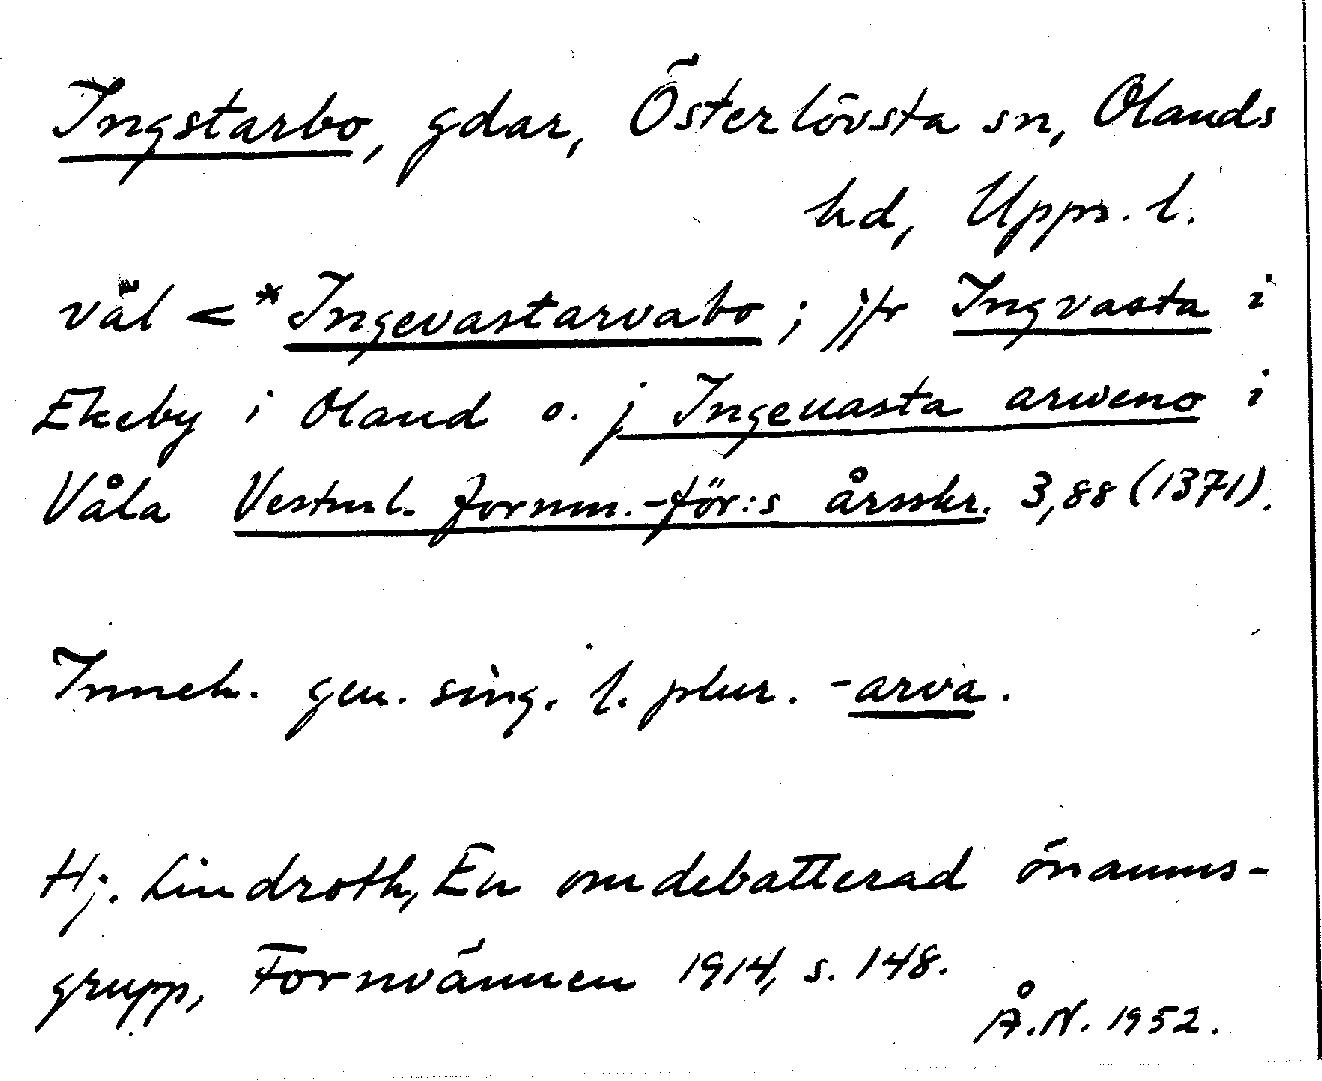 Ingstarbo, gdar, Österlövsta sn, Olands
hd, Upps. l.
väl < *Ingevastarvabo ; jfr Ingvasta i
Ekeby i Oland o. j Ingeuasta arweno i
Våla Vestml. fornm.-för:s årsskr. 3,88 (1371).
Inneh. gen. sing. l. plur. -arva.
Hj. Lindroth, En omdebatterad önamns-
grupp, Fornvännen 1914, s. 148.
Å.N. 1952.